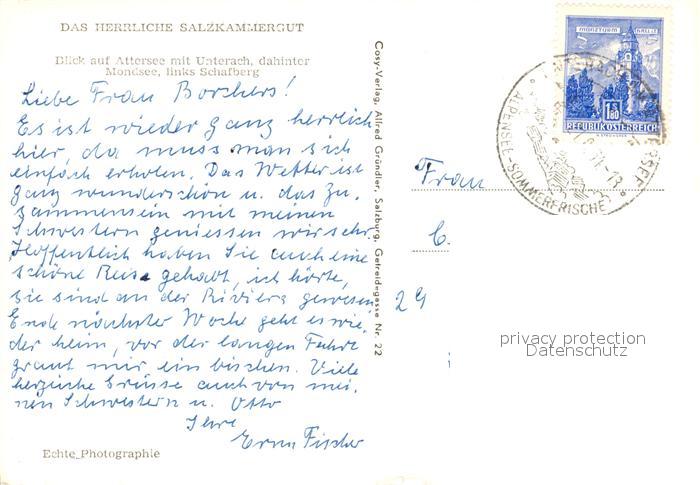 DAS HERRLICHE SALZKAMMERGUT
Blick auf Attersee mit Unterach, dahinter
Mondsee, links Schafberg
Liebe Frau Borchers!
Es ist wieder ganz herrlich
hier, da muss man sich
einfach erholen. Das Wetter ist
ganz wunderschön u. das Zu.
sammensein mit meinen
Schwestern geniessen wir sehr.
Hoffentlich haben Sie auch eine
schöne Reise gehabt, ich hörte,
sie sind an der Riviera gewesen.
Ende nächster Woche geht es wie.
der heim, vor der langen Fahrt
graut mir ein bischen. Viele
herzliche Grüsse auch von mei.
nen Schwestern u. Otto
Ihre
Erna Fischer
Echte Photographie
Cosy-Verlag, Alfred Gründler, Salzburg, Getreidegasse Nr. 22
MÜNZTURM HALL I.T.
1.80
REPUBLIK ÖSTERREICH
ALPENSEE-SOMMERFRISCHE
Frau
C.
29
privacy protection
Datenschutz